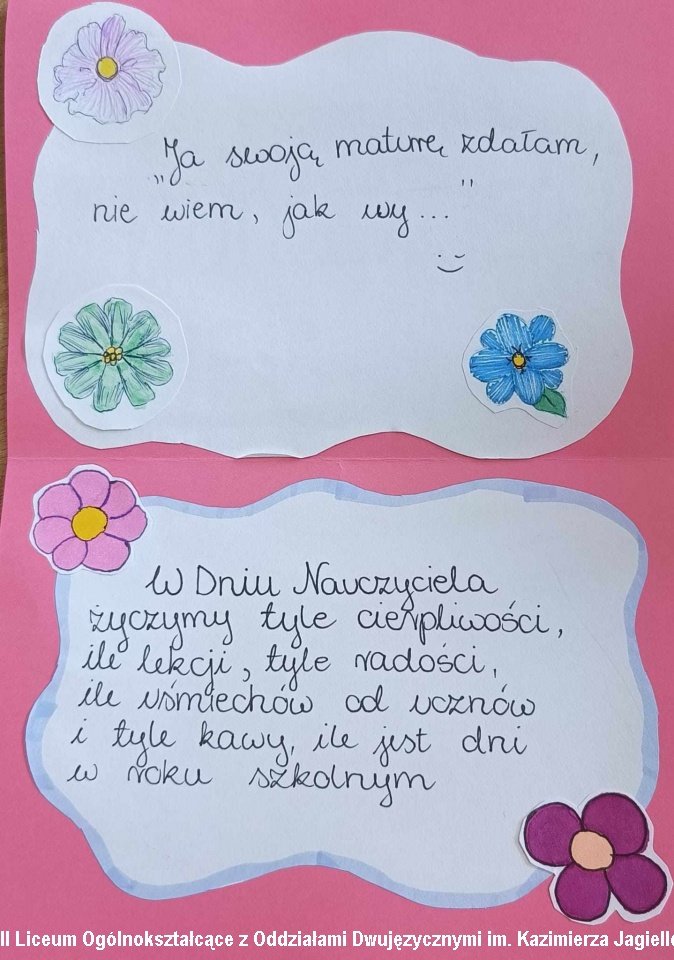 „Ja swoją maturę zdałam,
nie wiem, jak wy..."
W Dniu Nauczyciela
życzymy tyle cierpliwości,
ile lekcji, tyle radości,
ile uśmiechów od ucznów
i tyle kawy, ile jest dni
w roku szkolnym
II Liceum Ogólnokształcące z Oddziałami Dwujęzycznymi im. Kazimierza Jagiello